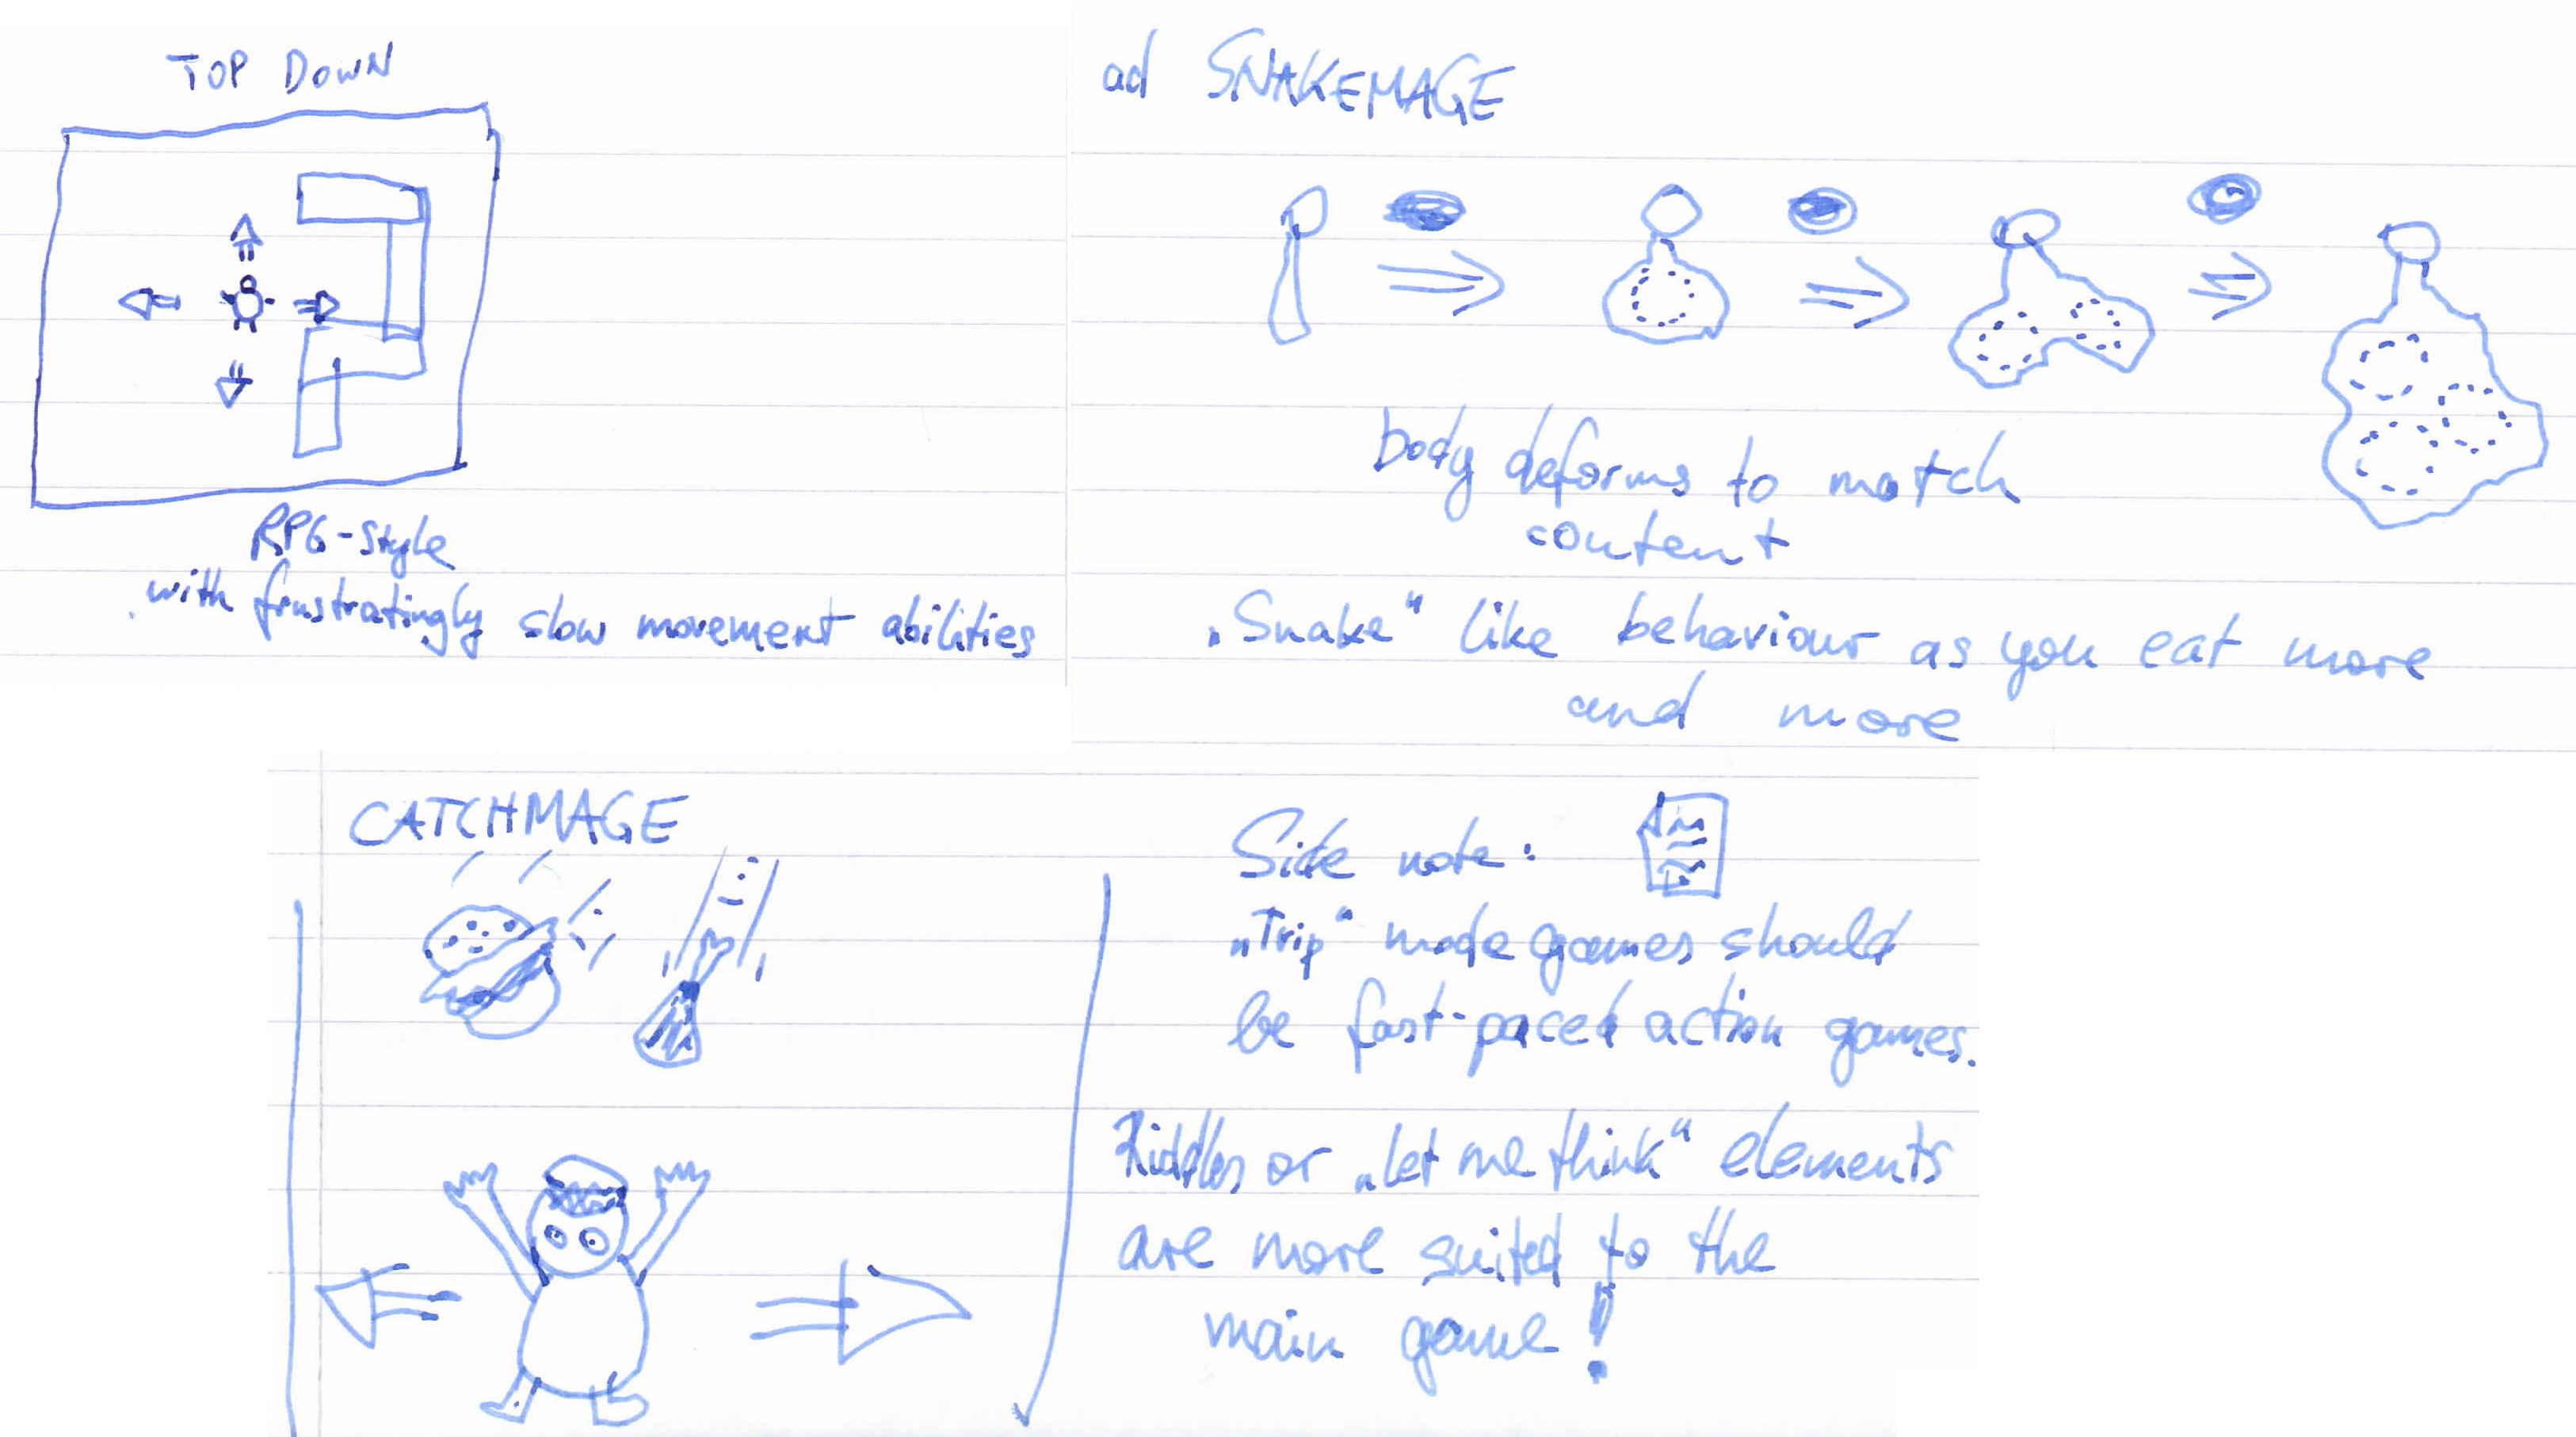 TOP DOWN
RPG-Style
with frustratingly slow movement abilities
ad SNAKEMAGE
body deforms to match
content
„Snake“ like behaviour as you eat more
and more
CATCHMAGE
Side note:
„Trip“ mode games should
be fast-paced action games.
Riddles or „let me think“ elements
are more suited to the
main game!